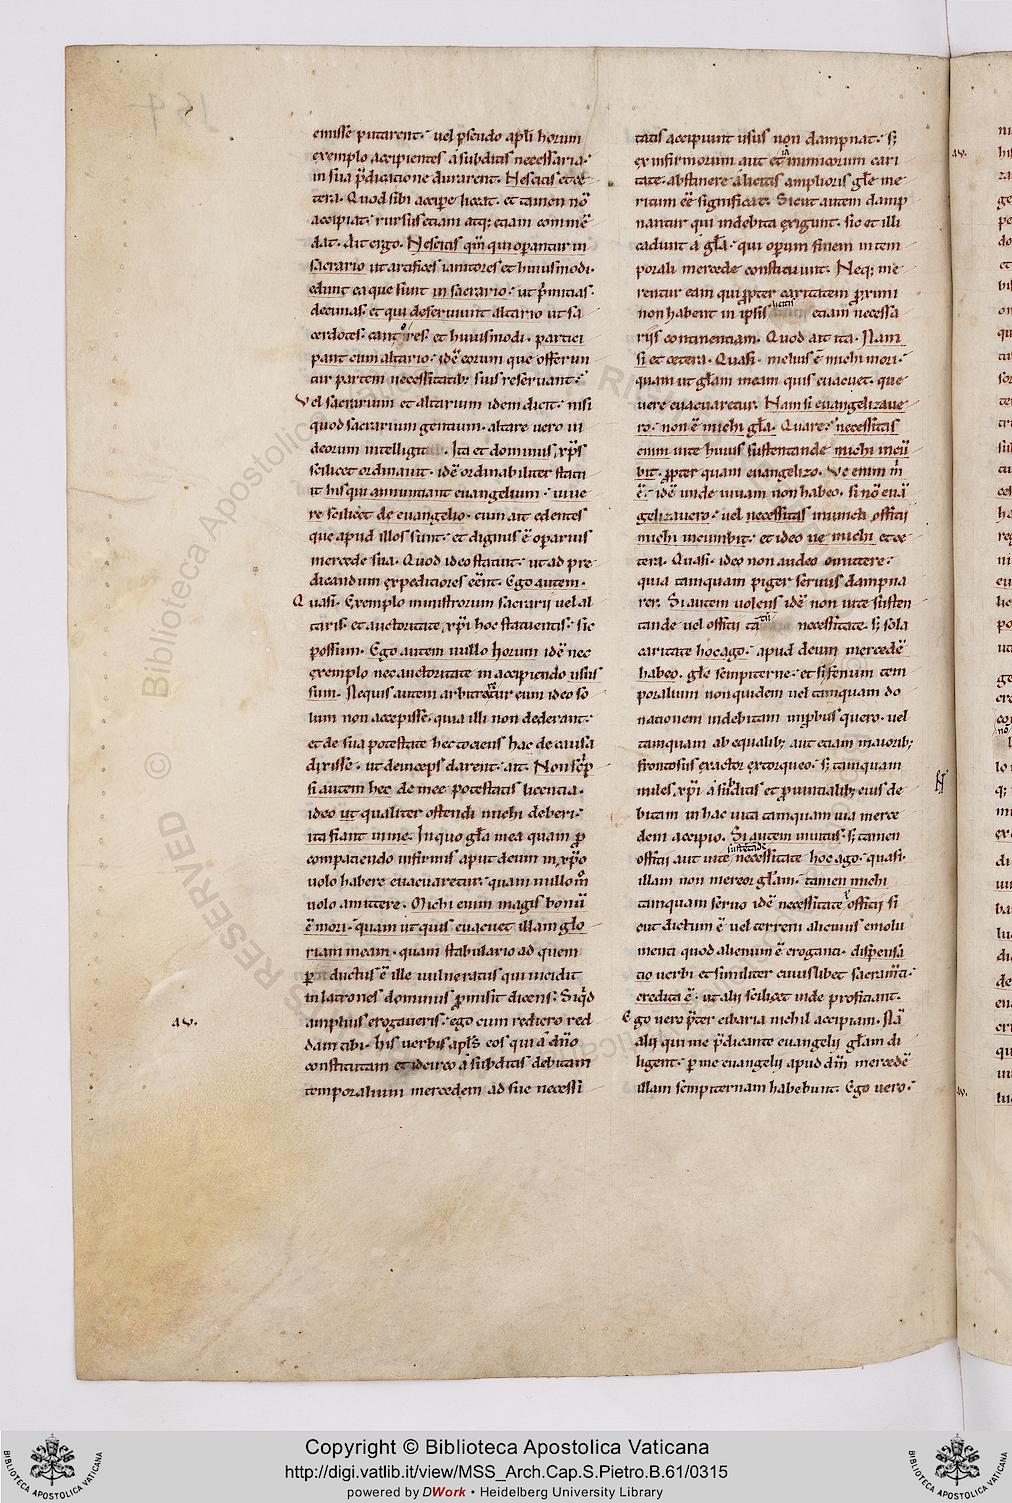 emisse putarent. uel p̄sendo apl̄i horum
exemplo accipientes a subditis necessaria.
in sua p̄dicatione durarent. Nescitis et ce
tera. Quod sibi accipe liceat. et tamen nō
accipiat. rursus etiam atq; etiam commē
dat. Ait ergo. Nescitis qm̄ qui operantur in
sacrario ut artifices ianitores et huiusmodi.
edunt ea que sunt in sacrario. ut p̄mitias.
decimas. et qui deseruiunt altario ut sa
cerdotes. cantores. et huiusmodi. partici
pant cum altario. idē eorum que offerun
tur partem necessitatib; suis reseruant.
Vel sacrarium et altarium idem dicit. nisi
quod sacrarium gentium. altare uero iu
deorum intelligit. Ita et dominus xp̄s
scilicet ordinauit. idē ordinabiliter statu
it his qui annuntiant euangelium. uiue
re scilicet de euangelio. cum ait edentes
que apud illos sunt. et dignus ē operarius
mercede sua. Quod ideo statuit. ut ad pre
dicandum expeditiores eēnt. Ego autem.
Quasi. Exemplo ministrorum sacrarii uel al
taris. et auctoritate xp̄i hoc statuentis. sic
possum. Ego autem nullo horum idē nec
exemplo nec auctoritate in accipiendo usus
sum. Nequis autem arbitretur eum ideo so
lum non accepisse. quia illi non dederant.
et de sua potestate hec tociens hac de causa
dixisse. ut deinceps darent. ait. Non scp̄
si autem hec de mee potestatis licentia.
ideo ut qualiter ostendi michi deberi.
ita fiant in me. In quo gl̄a mea quam p
compatiendo infirmis aput deum in xp̄o
uolo habere euacuaretur. quam nullo m̊
uolo amittere. Michi enim magis bonū
ē mori. quam ut quis euacuet illam glo
riam meam. quam stabulario ad quem
p ductus ē ille uulneratus qui incidit
in latrones dominus p̄misit dicens. Siqd
amplius erogaueris. ego cum rediero red
dam tibi. his uerbis apl̄s eos qui a dn̄o
constitutam et idcirco a subditis debitam
temporalium mercedem ad sue necessi
tatis accipiunt usus non dampnat. s;
ex infirmorum aut et in inimicorum cari
tate. abstinere a licitis amplioris gl̄e me
ritum eē significat. Sicut autem damp
nantur qui indebita exigunt. sic et illi
cadunt a gl̄a. qui operum finem in tem
porali mercede constituunt. Neq; me
rentur eam qui propter caritatem proximi
non habent in ipsis licitis etiam necessa
riis continentiam. Quod ait ita. Nam
si et cetera. Quasi. melius ē michi mori.
quam ut gl̄am meam quis euacuet. que
uere euacuaretur. Nam si euangelizaue
ro. non ē michi gl̄a. Quare. necessitas
enim uite huius sustentande michi incū
bit. propter quam euangelizo. Ve enim m̄
ē. idē unde uiuam non habeo. si nō euā
gelizauero. uel necessitas iniuncti officii
michi incumbit. et ideo ue michi et ce
tera. Quasi. ideo non audeo omittere.
quia tamquam piger seruus dampna
rer. Si autem uolens idē non uite susten
tande uel officii tātū necessitate. s; sola
caritate hoc ago. apud deum mercedē
habeo. gl̄e sempiterne. et si fenum tem
poralium non quidem uel tamquam do
nationem indebitam improbus quero. uel
tamquam ab equalib; aut etiam maiorib;
frontosus exactor extorqueo. s; tamquam
miles xp̄i a subditis et prouintialib; eius de
bitum in hac uita tamquam uia merce
dem accipio. Si autem inuitus. s; tamen
officii aut uite sustētāde necessitate hoc ago. quasi.
illam non mereor gl̄am. tamen michi
tamquam seruo idē necessitate officii si
cut dictum ē uel terreni alicuius emolu
menti quod alienum ē eroganti. dispensa
tio uerbi et similiter cuiuslibet sacram̄ti.
credita ē. ut alii scilicet inde proficiant.
Ego uero p̄ter cibaria nichil accipiam. Nā
alii qui me p̄dicante euangelii gl̄am di
ligent. p me euangelii apud dm̄ mercedē
illam sempiternam habebunt. Ego uero.
av.
av.
av.
Copyright © Biblioteca Apostolica Vaticana
http://digi.vatlib.it/view/MSS_Arch.Cap.S.Pietro.B.61/0315
powered by DWork • Heidelberg University Library